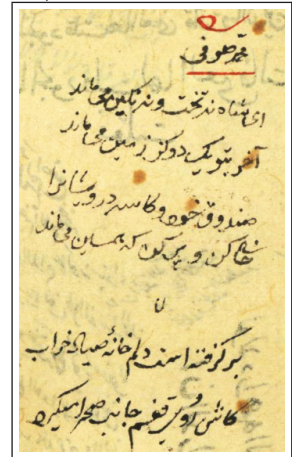 محمد صوفی
ای شاه نه تخت و نه نگین می ماند
آخر بتو یک دو گز زمین می ماند
صندوق خود و کاسه درویشانرا
خالی کن و پر کن که همین می ماند
گرفته است دلم خانهٔ صیاد خراب
کاش روی قفسم جانب صحرا میکرد